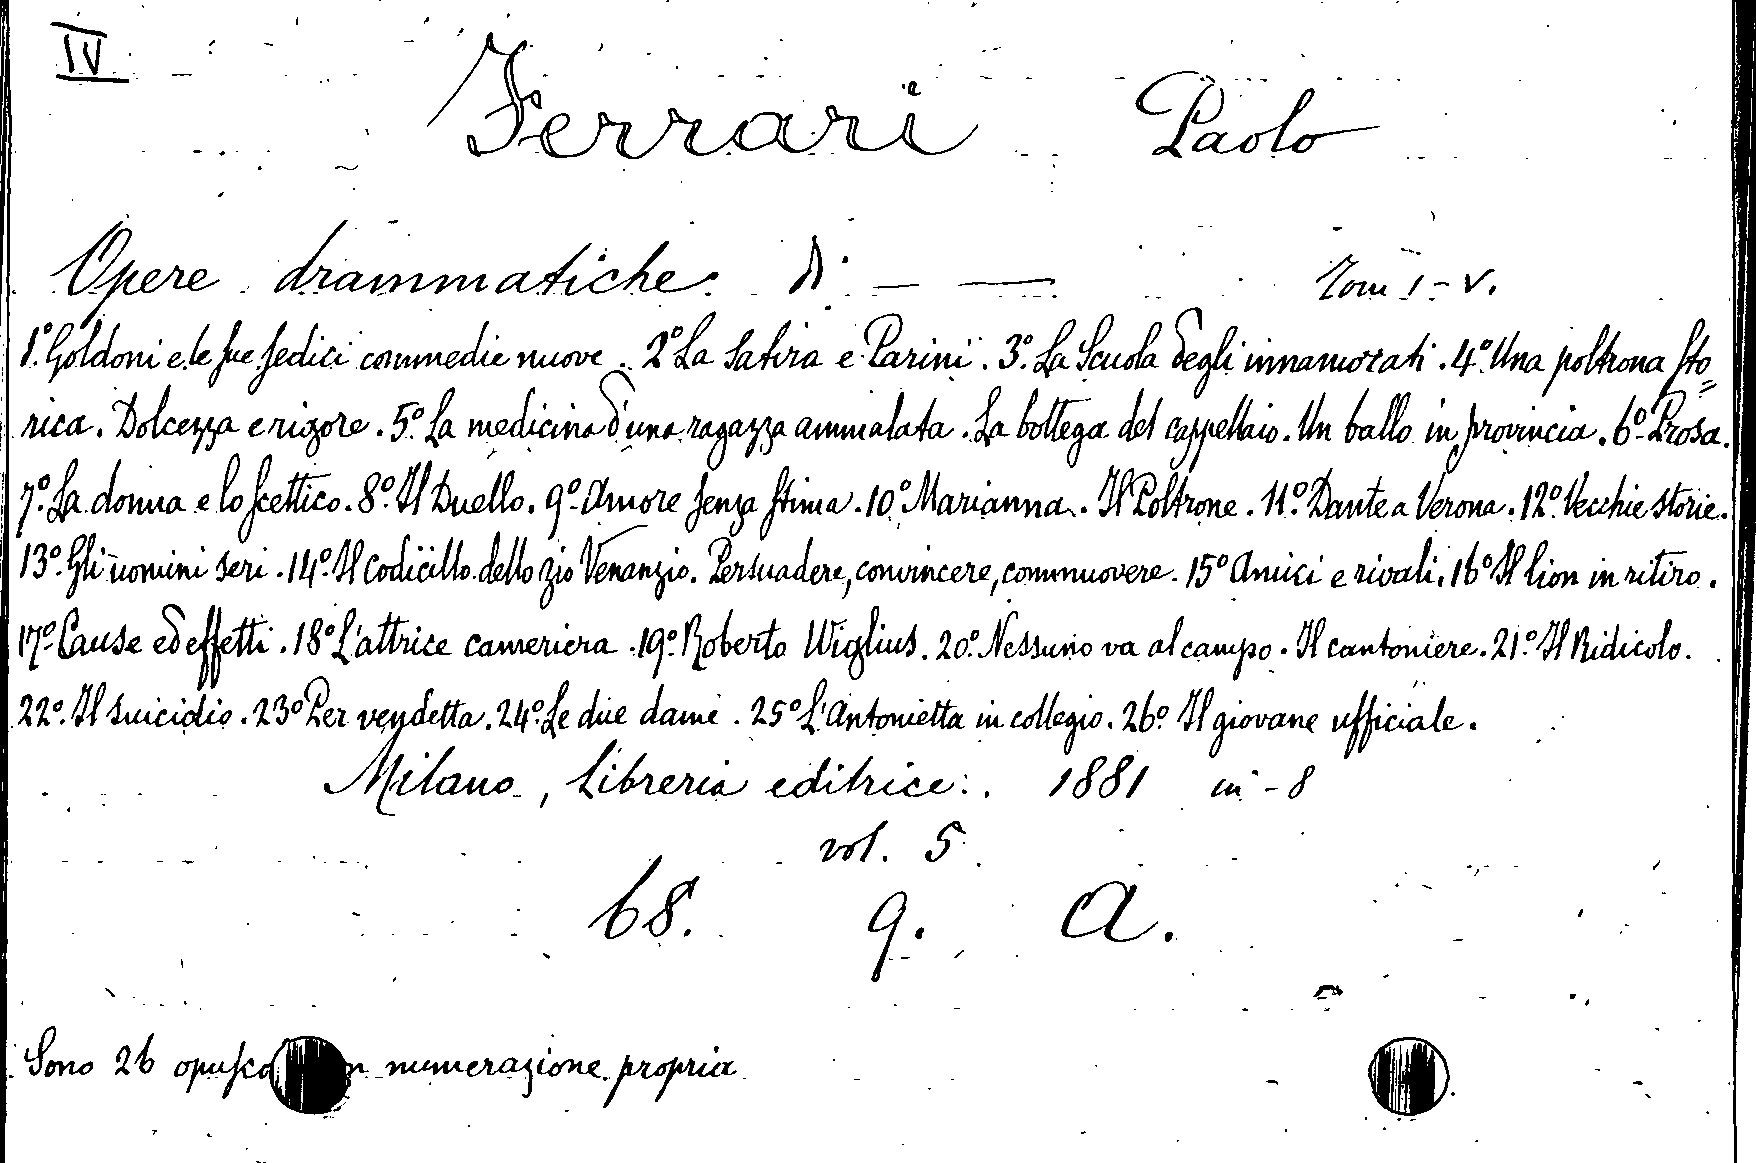 IV
Ferrari Paolo
Opere drammatiche di — — Tom I-V.
1º. Goldoni e le sue sedici commedie nuove. 2º La satira e Parini. 3º. La Scuola degli innamorati. 4º. Una poltrona sto=
rica. Dolcezza e rigore. 5º. La medicina d'una ragazza ammalata. La bottega del cappellaio. Un ballo in provincia. 6º. Prosa.
7º. La donna e lo scettico. 8º. Il Duello. 9º. Amore senza stima. 10º Marianna. Il Poltrone. 11º. Dante a Verona. 12º. Vecchie storie.
13º. Gli uomini seri. 14º. Il Codicillo dello zio Venanzio. Persuadere, convincere, commuovere. 15º Amici e rivali. 16º Il lion in ritiro.
17º. Cause ed effetti. 18º L'attrice cameriera. 19º. Roberto Wiglius. 20º. Nessuno va al campo. Il cantoniere. 21º. Il Ridicolo.
22º. Il suicidio. 23º Per vendetta. 24º. Le due dame. 25º L'Antonietta in collegio. 26º. Il giovane ufficiale.
Milano, Libreria editrice. 1881 in-8
vol. 5
68. 9. A.
Sono 26 numerazione propria